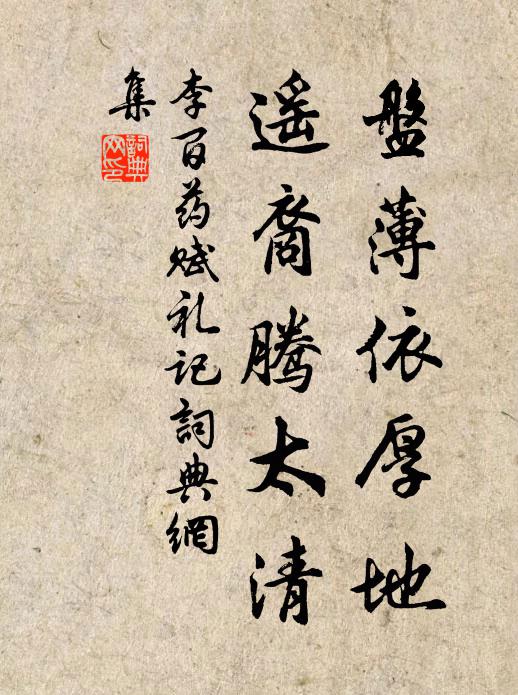 盤薄依厚地
遥裔腾太清
李百药赋礼记詞典網
集
詞典
网印